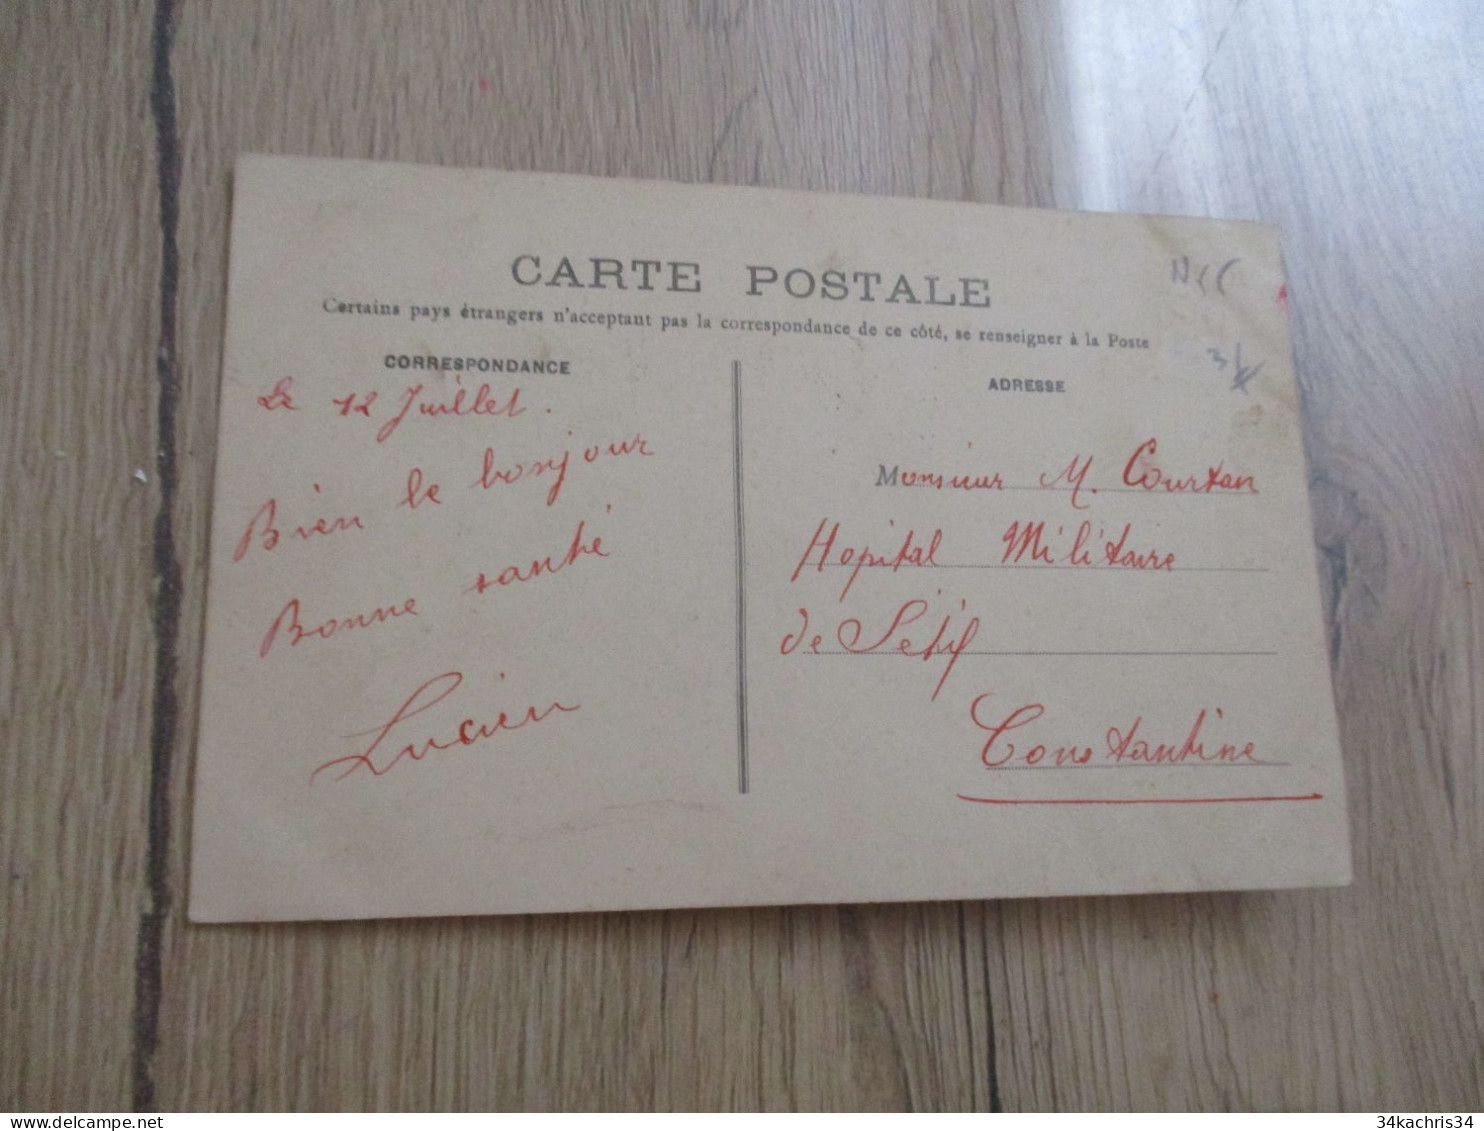 CARTE POSTALE
Certains pays étrangers n'acceptant pas la correspondance de ce côté, se renseigner à la Poste
CORRESPONDANCE
Le 12 Juillet.
Bien le bonjour
Bonne santé
Lucien
ADRESSE
Monsieur M. Courtan
Hopital Militaire
de Sétif
Constantine
delcampe.net
34kachris34